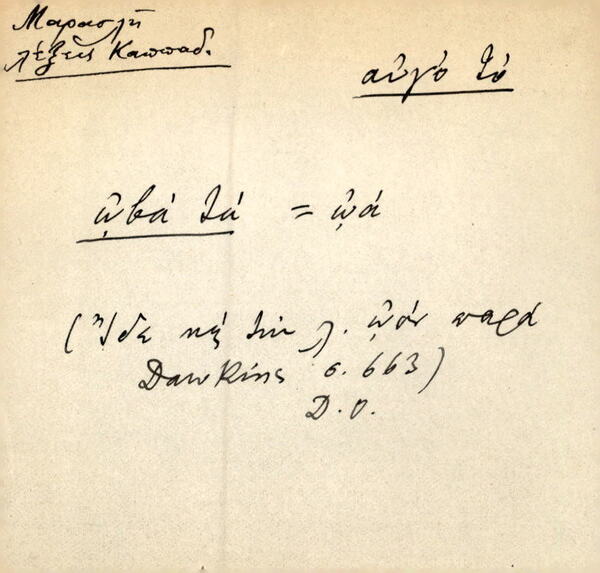 Μαρασλῆ
λέξεις Καππαδ.
αὐγό τό
ᾠβά τά = ᾠά
(Ἴδε καὶ τὴν λ. ᾠόν παρά
Dawkins σ. 663)
D. O.